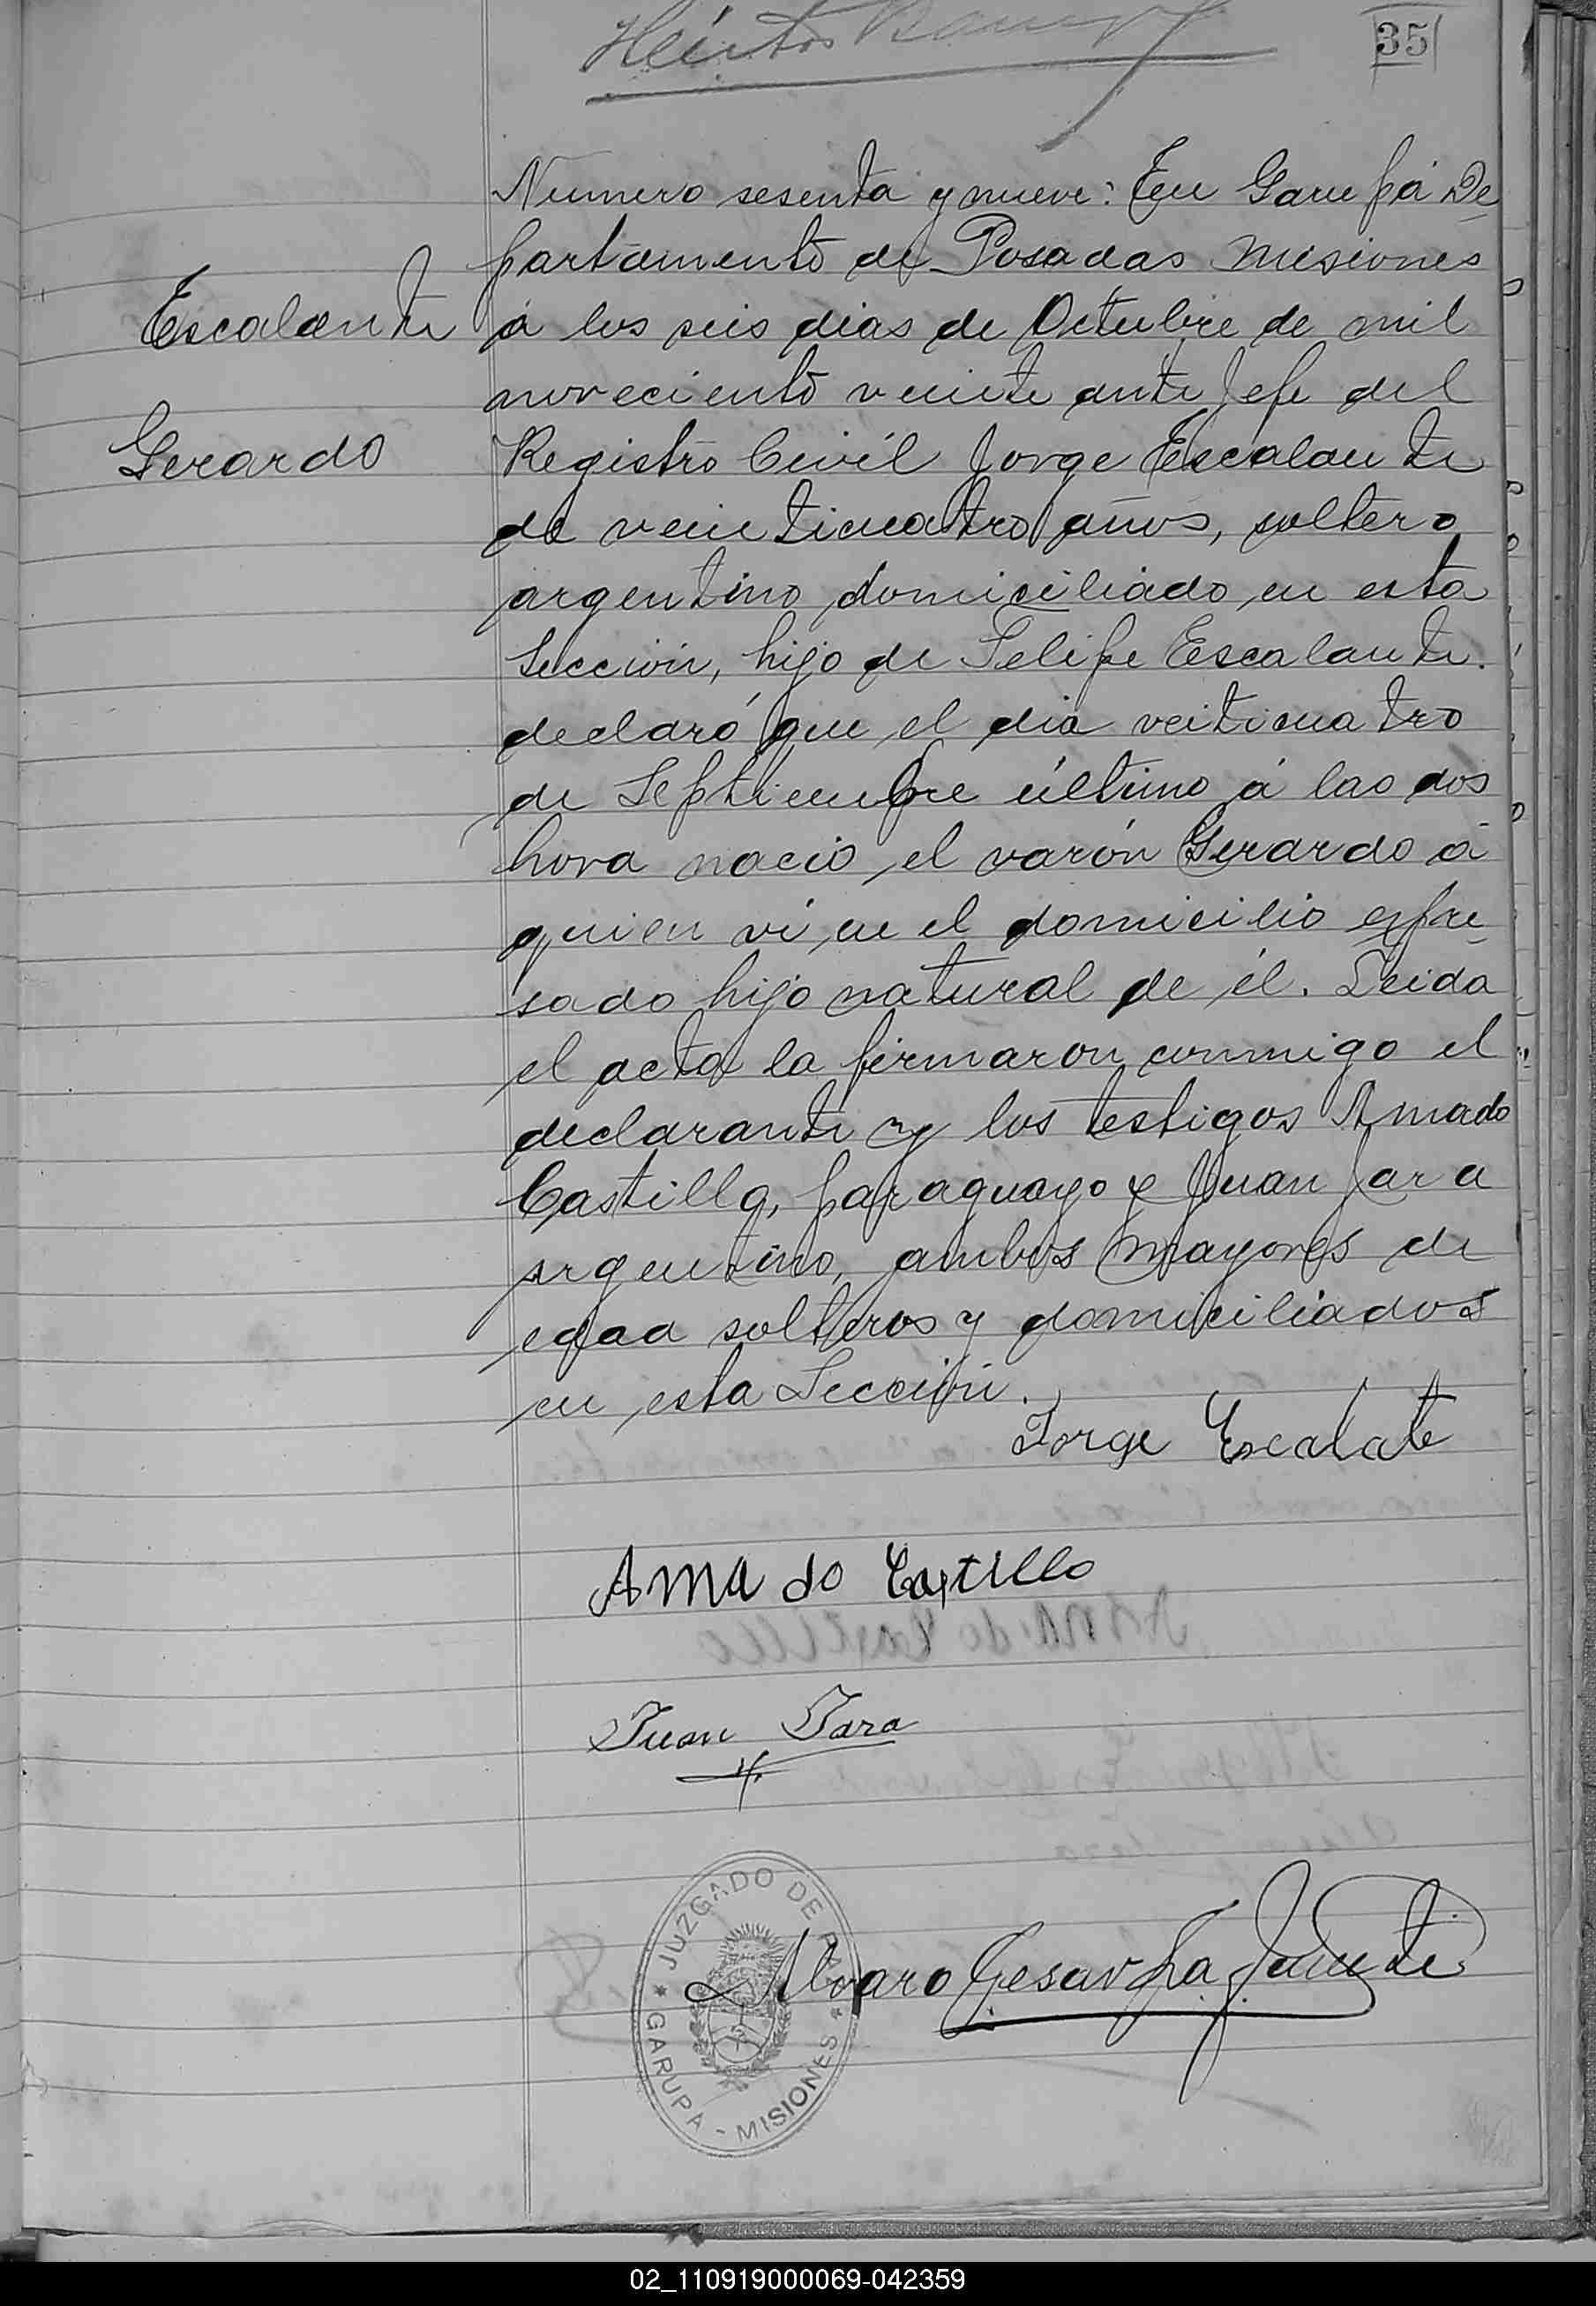 Héctor
35
Numero sesenta y nueve: En Garupá De
partamento de Posadas Misiones
Escalante
á los seis dias de Octubre de mil
noveciento veinte ante Jefe del
Gerardo
Registro Civil Jorge Escalante
de veinticuatro años, soltero
argentino domiciliado en esta
Sección, hijo de Felipe Escalante.
declaró que el dia veiticuatro
de Septiembre último á las dos
hora nació el varón Gerardo á
quien ví en el domicilio expre
sado hijo natural de él. Leida
el acta la firmaron conmigo el
declarante y los testigos Amado
Castillo, paraguayo y Juan Jara
argentino, ambos mayores de
edad solteros y domiciliados
en esta Sección.
Jorge Escalate
Amado Castillo
Juan Jara
JUZGADO DE PAZ
Alvaro Cesar
GARUPA - MISIONES
02_110919000069-042359